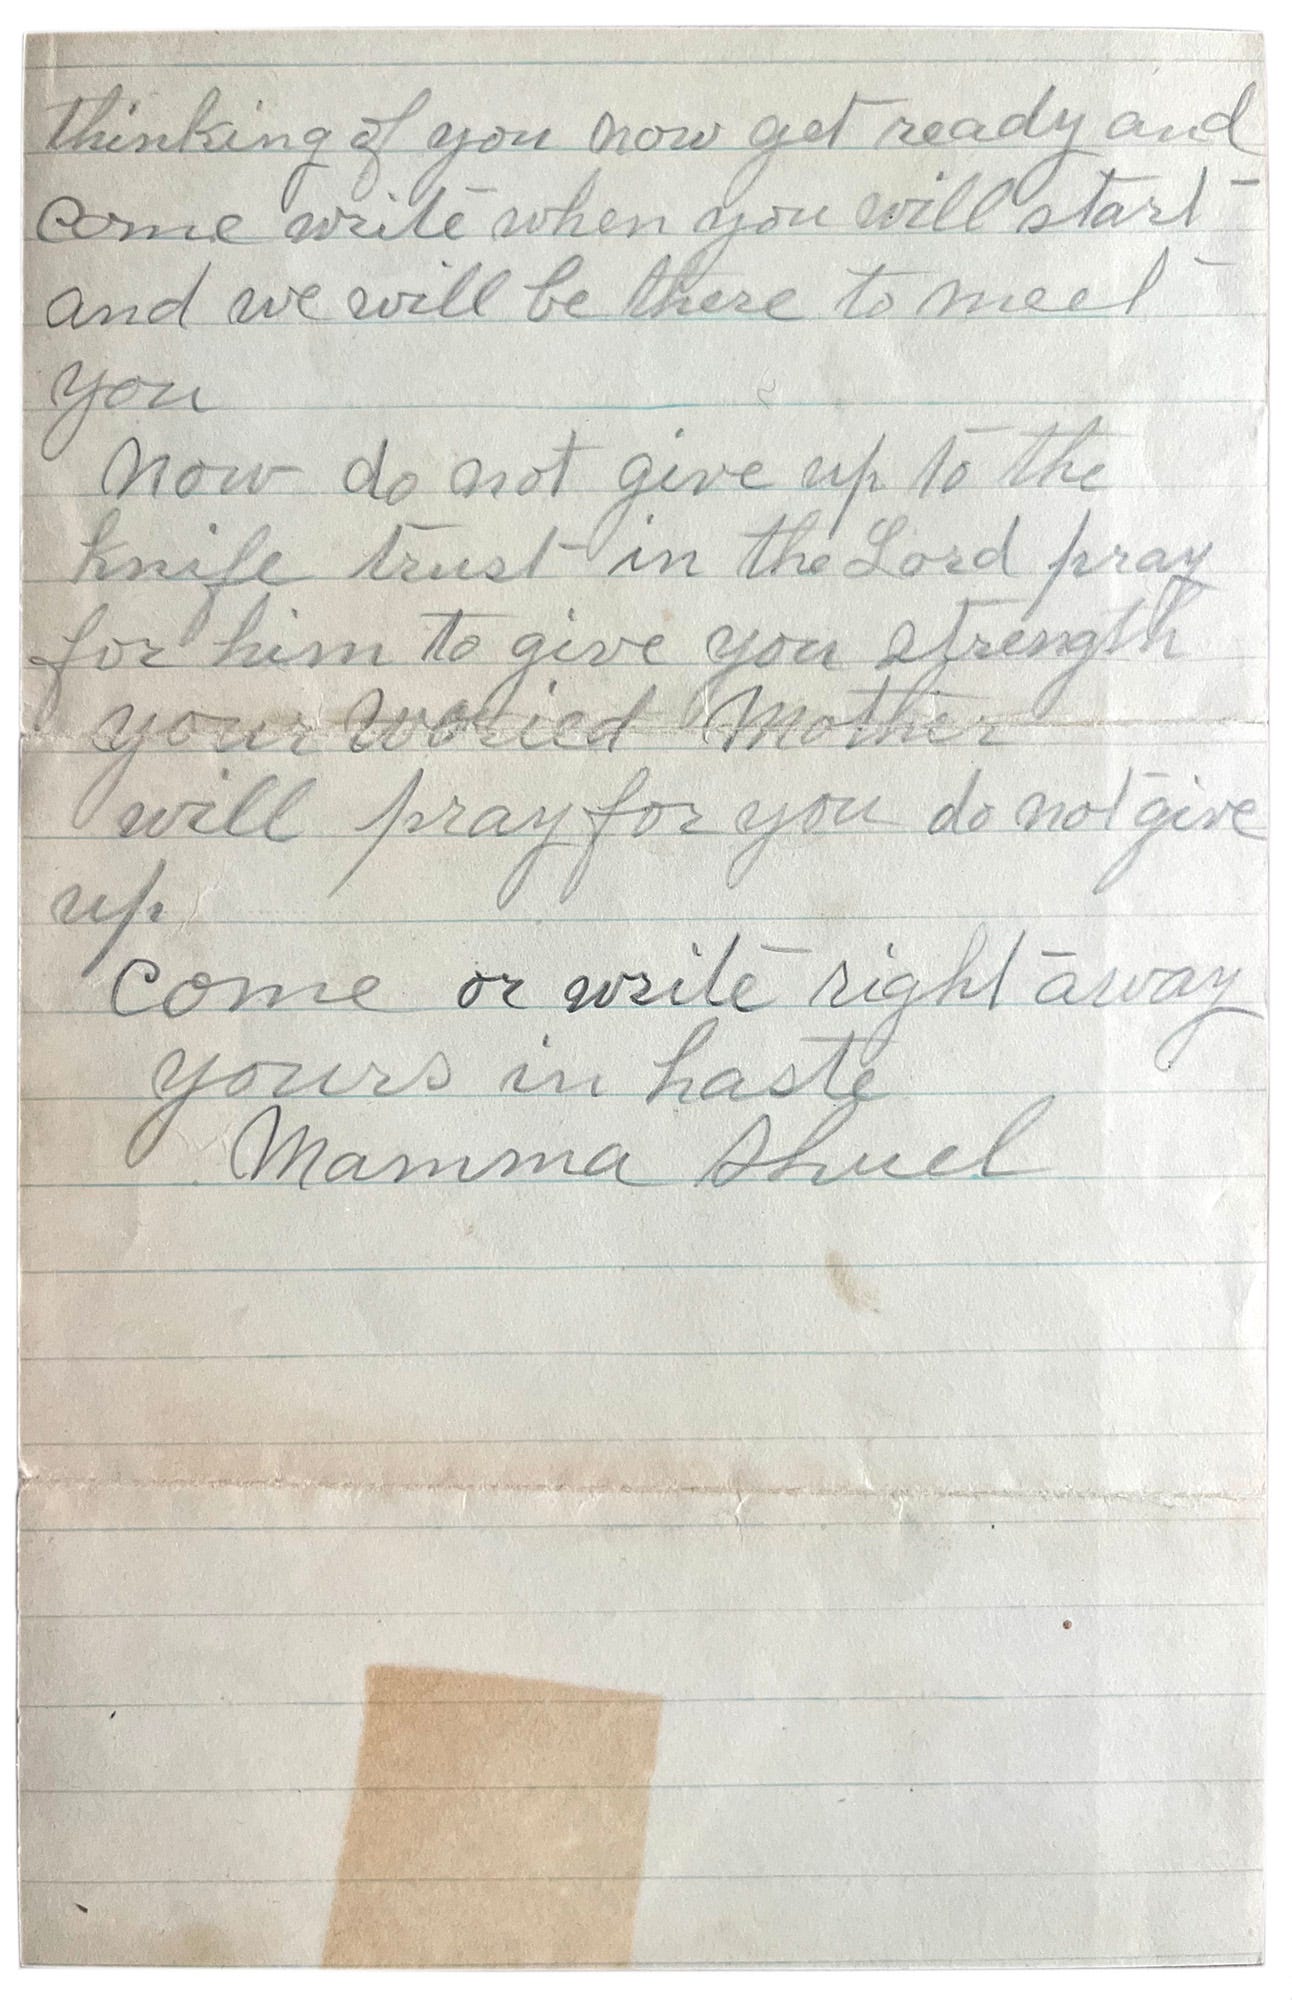 thinking of you now get ready and
come write when you will start
and we will be there to meet
you
Now do not give up to the
knife trust in the Lord pray
for him to give you strength
your woried Mother
will pray for you do not give
up
come or write right away
yours in haste
Mamma Shuel